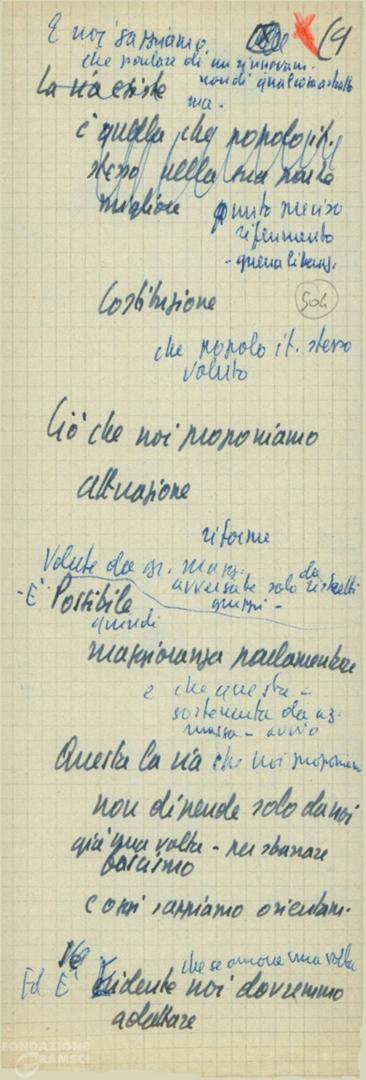 E noi sappiamo (9
che parlare di un rinnovam.
non di qualcosa astratto
La via esiste ma -
è quella che popolo it.
stesso nella sua parte
migliore punto preciso
riferimento
- guerra liberaz.
Costituzione 504
che popolo it. stesso
voluto
Ciò che noi proponiamo
attuazione
riforme
Volute da gr. magg.
avversate solo da ristretti
gruppi -
- E' Possibile
quindi
maggioranza parlamentare
e che questa -
sostenuta da az.
massa - avvio
Questa la via che noi proponiamo
non dipende solo da noi
già una volta - per sbarrare
fascismo
e oggi sappiamo orientam.
16
che se ancora una volta
Ed E' evidente noi dovremmo
adattare
FONDAZIONE
GRAMSCI